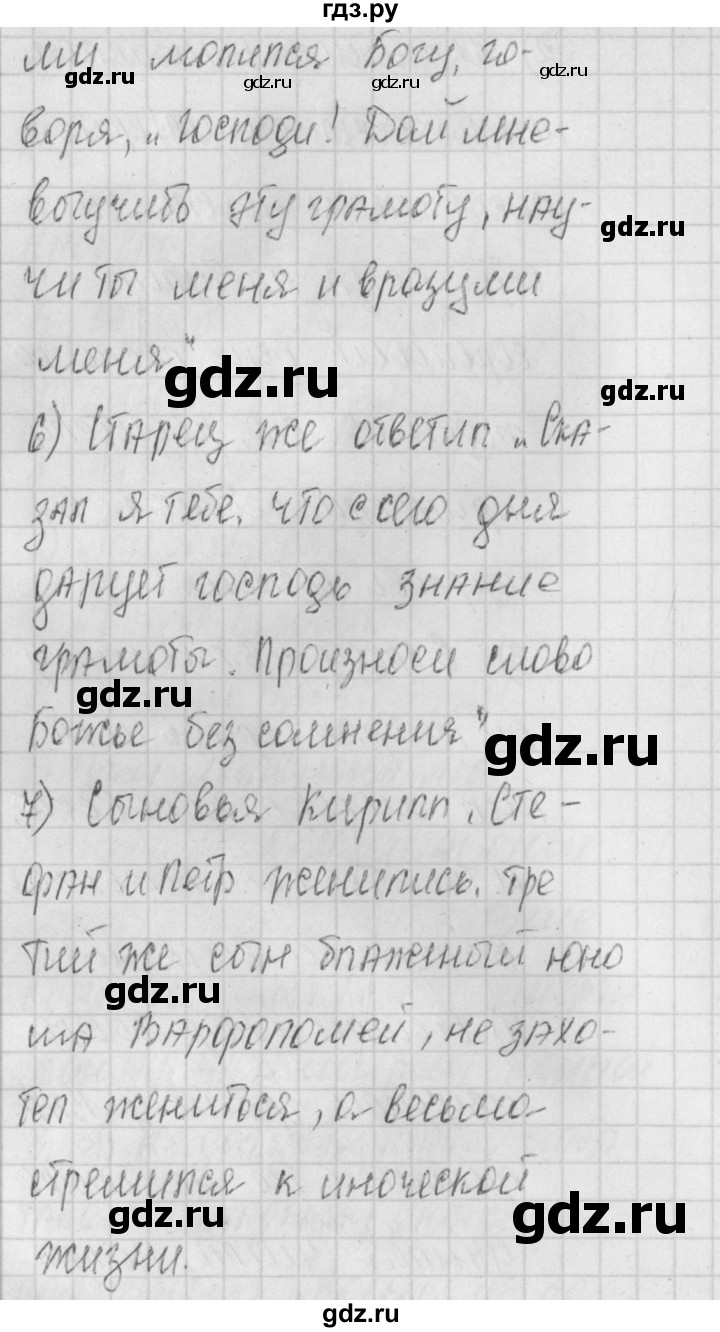 гдз.ру
ми молился Богу, го-
gdz.ru gdz.ru gdz.ru
воря, „Господи! Дай мне-
выучить эту грамоту, нау-
gdz.ru
чи ты меня и вразуми
меня"
gdz.ru gdz.ru
6) Старец же ответил „Ска-
зал я тебе, что с сего дня
дарует господь знание
грамоты. Произноси слово
gdz.ru
Божье без сомнения"
gdz.ru
7) Сыновья Кирилл, Сте-
фан и Петр женились. Тре
тий же сын блаженый юно
gdz.ru
ша Варфоломей, не захо-
тел жениться, а весьма
стремился к иноческой
gdz.ru gdz.ru
жизни.
gdz.ru